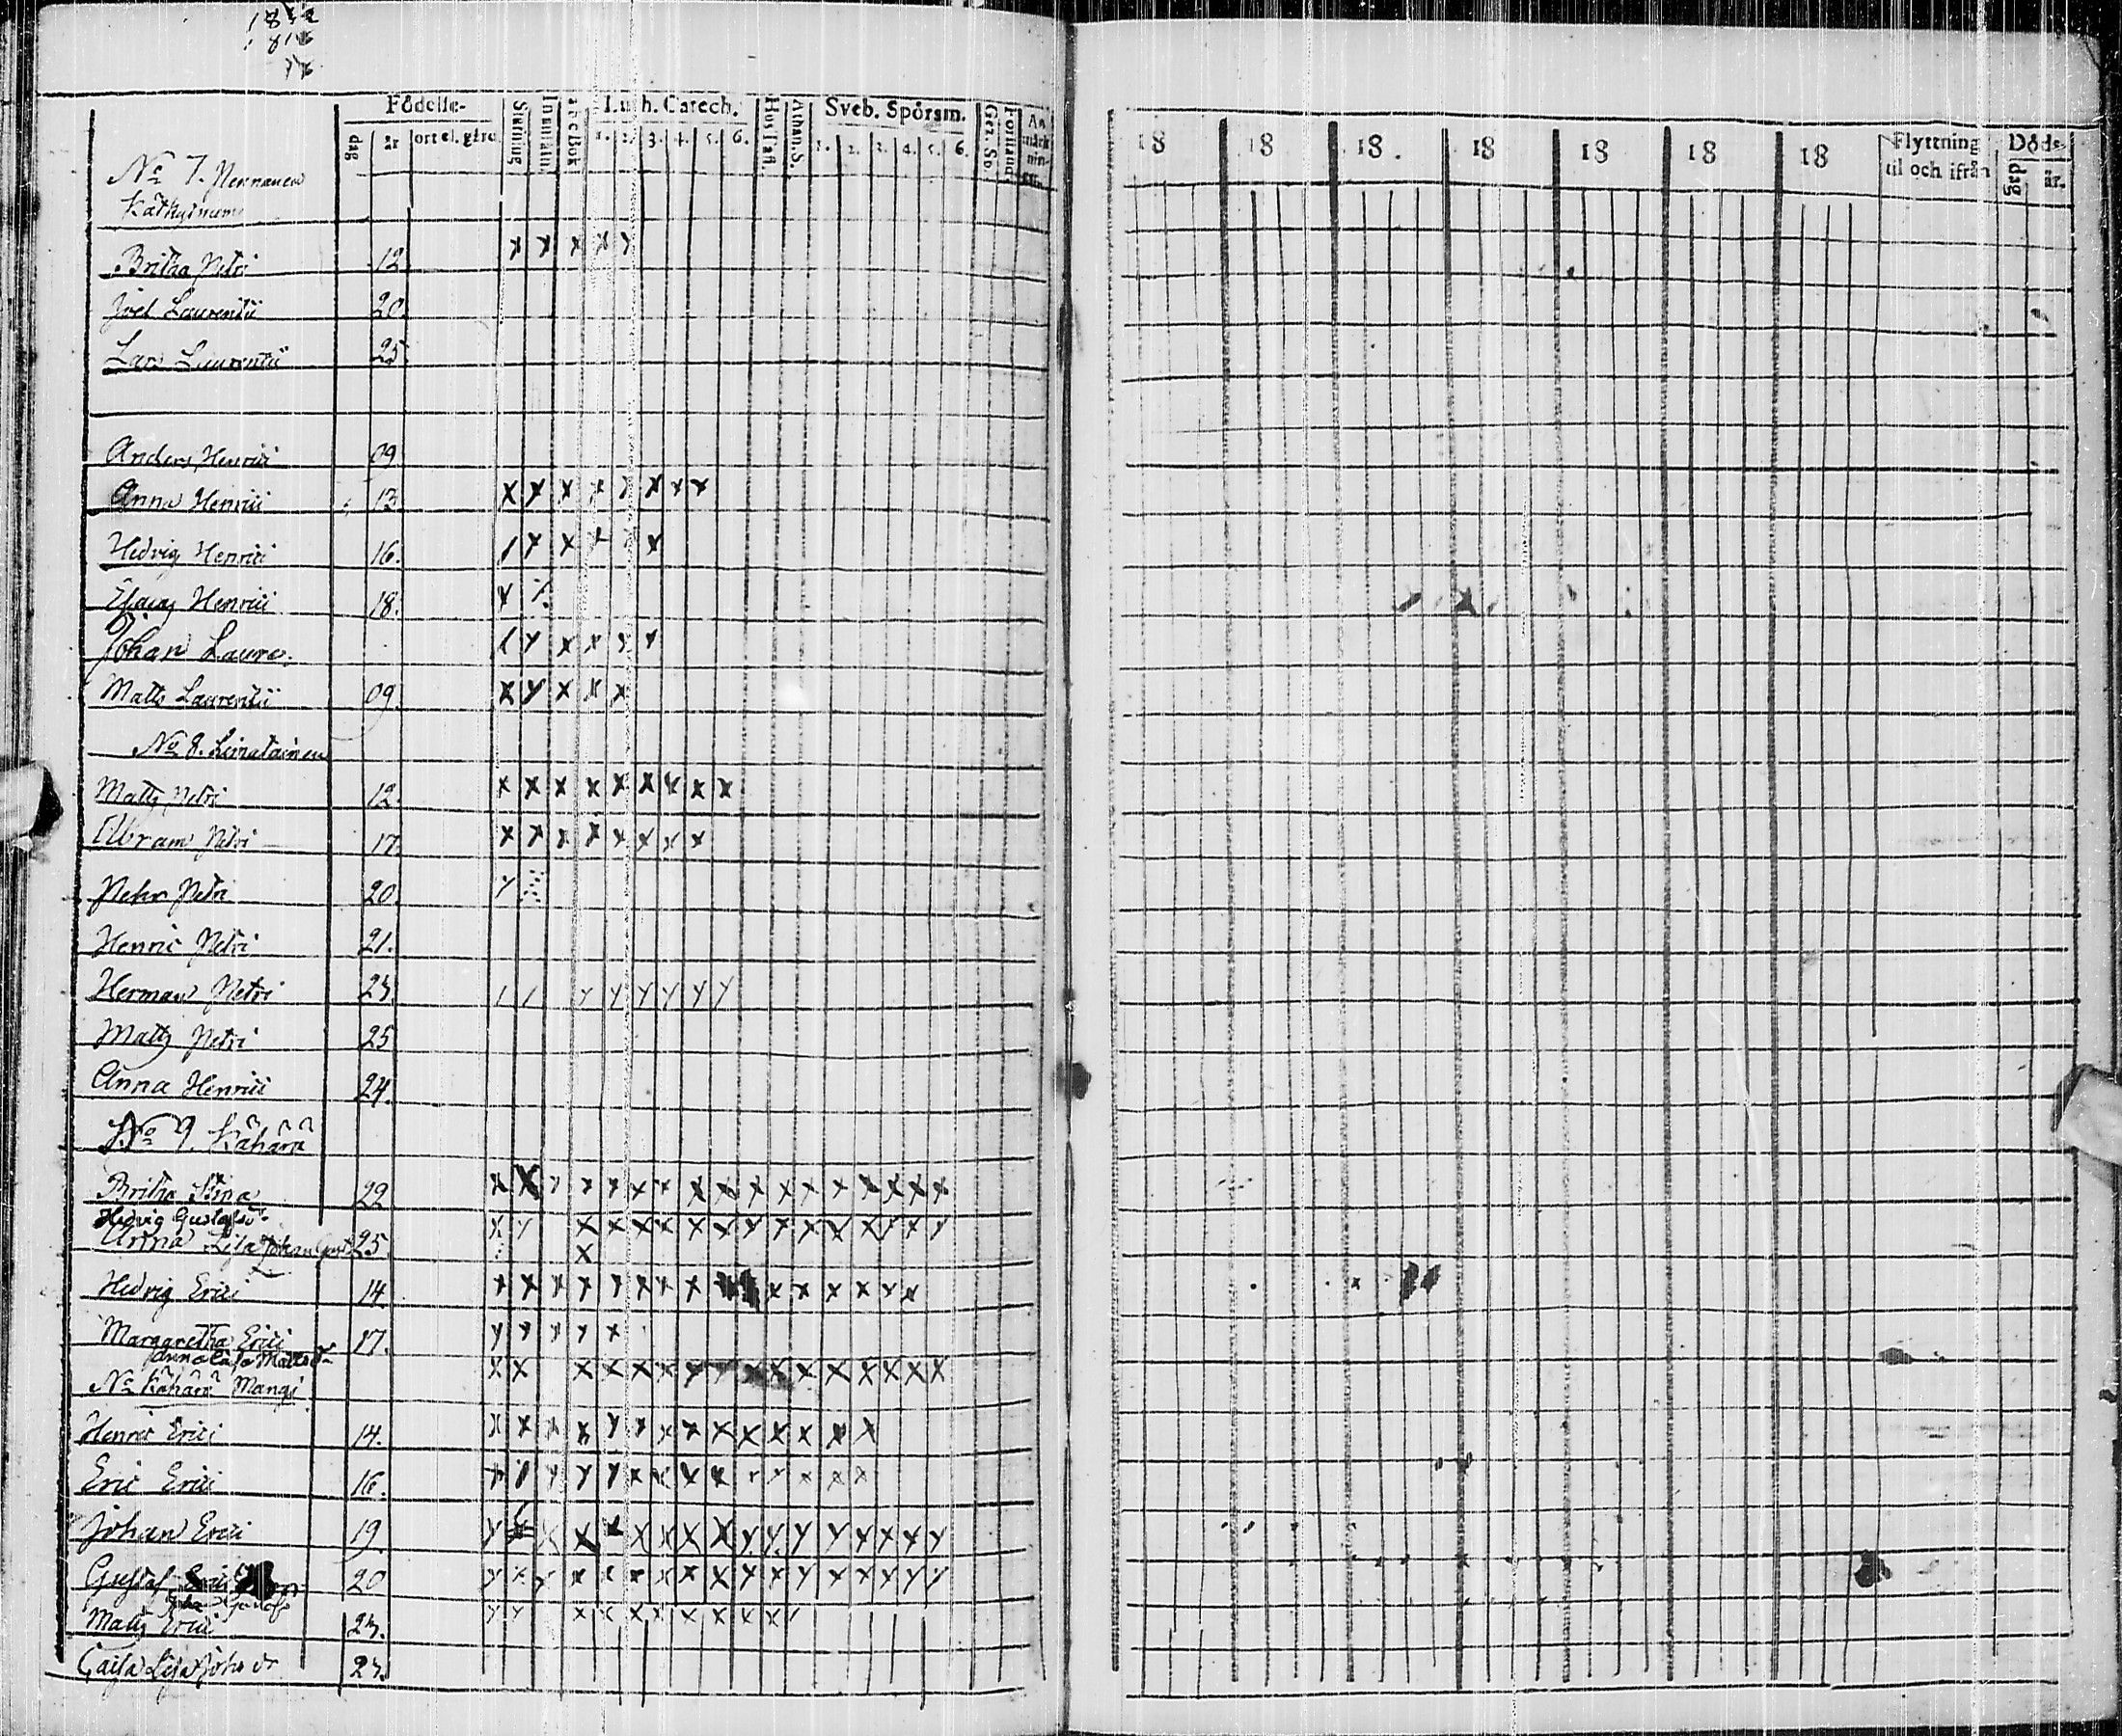 Födelse-
dag
år
ort el. gård
Luth. Catech.
1. 2. 3. 4. 5. 6.
Hus Tafl.
Athan. S.
Sveb. Spörsm.
1. 2. 3. 4. 5. 6.
18 18 18. 18 18 18 18
Flyttning
til och ifrån
Döds-
dag
år.
No 7.
Britha Petri 12
Joel Laurentii 20.
Lars Laurentii 25
Anders Henrici 09
Anna Henrici 13
Hedvig Henrici 16.
Henrici 18.
Johan Laure.
Matts Laurentii 09.
No 8. Limatainen
Matts Petri 12.
Abram Petri 17.
Petter Petri 20.
Henric Petri 21.
Herman Petri 23.
Matts Petri 25
Anna Henrici 24.
No 9. Kähärä
Britha Stina 22
Hedvig Gustafsd.
Anna Lisa Johan 25
Hedvig Erici 14.
Margaretha Erici 17.
Matts dr
No Kähärä Mangi
Henric Erici 14.
Eric Erici 16.
Johan Erici 19.
Gustaf Erici 20
Matts Erici 23.
Cajsa Lisa Johs dr 23.